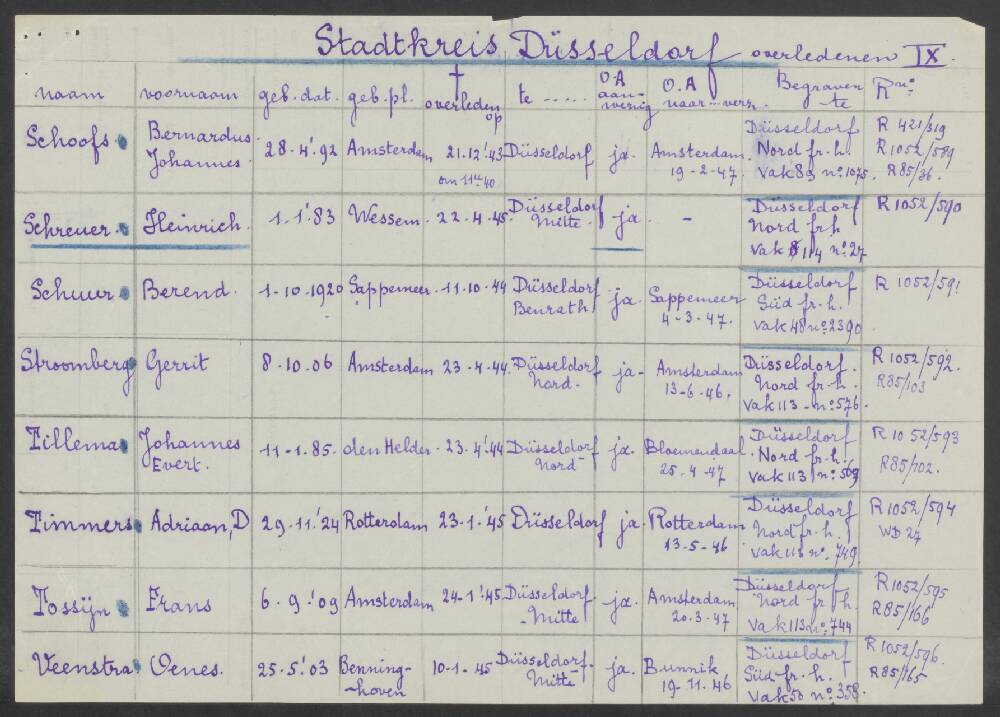 Stadtkreis Düsseldorf overledenen IX.
naam voornaam geb. dat. geb. pl. † overleden op te ..... O.A aanwezig O.A naar verz. Begraven te R no.
Schoofs Bernardus Johannes 28-4-'92 Amsterdam 21.12.'43 om 11 u 40 Düsseldorf ja. Amsterdam. 19-2-47. Düsseldorf Nord fr. h. Vak 83 no. 1075. R 421/319 R 1052/589 R 85/36.
Schreuer Heinrich 1-1-'83 Wessem 22-4-45 Düsseldorf Mitte ja. - Düsseldorf Nord fr h vak 114 no. 27 R 1052/590
Schuur Berend. 1-10-1920 Sappemeer 11-10-44 Düsseldorf Benrath ja. Sappemeer 4-3-47. Düsseldorf Süd fr. h. vak 48 no. 2390. R 1052/591
Stroomberg Gerrit 8-10-06 Amsterdam 23-4-44. Düsseldorf Nord. ja. Amsterdam 13-6-46. Düsseldorf. Nord fr. h. vak 113 - no. 576. R 1052/592. R85/103
Tillema Johannes Evert. 11-1-85. den Helder. 23-4-'44 Düsseldorf Nord ja. Bloemendaal. 25-4-47 Düsseldorf Nord fr. h. vak 113 no. 569 R 1052/593 R85/102.
Timmers Adriaan, D 29-11-'24 Rotterdam 23-1-'45 Düsseldorf ja. Rotterdam 13-5-46 Düsseldorf Nord fr. h. no. 749. R 1052/594 WD 27
Tossijn Frans 6-9-'09 Amsterdam 24-1-'45. Düsseldorf - Mitte ja. Amsterdam 20-3-47 Düsseldorf Nord fr h. vak 113 no. 744 R 1052/595 R 85/166
Veenstra Oenes. 25-5-'03 Benninghoven 10-1-45 Düsseldorf. Mitte ja. Bunnik 19-11-46 Düsseldorf Süd fr. h. vak 50 no. 358. R 1052/596. R85/165